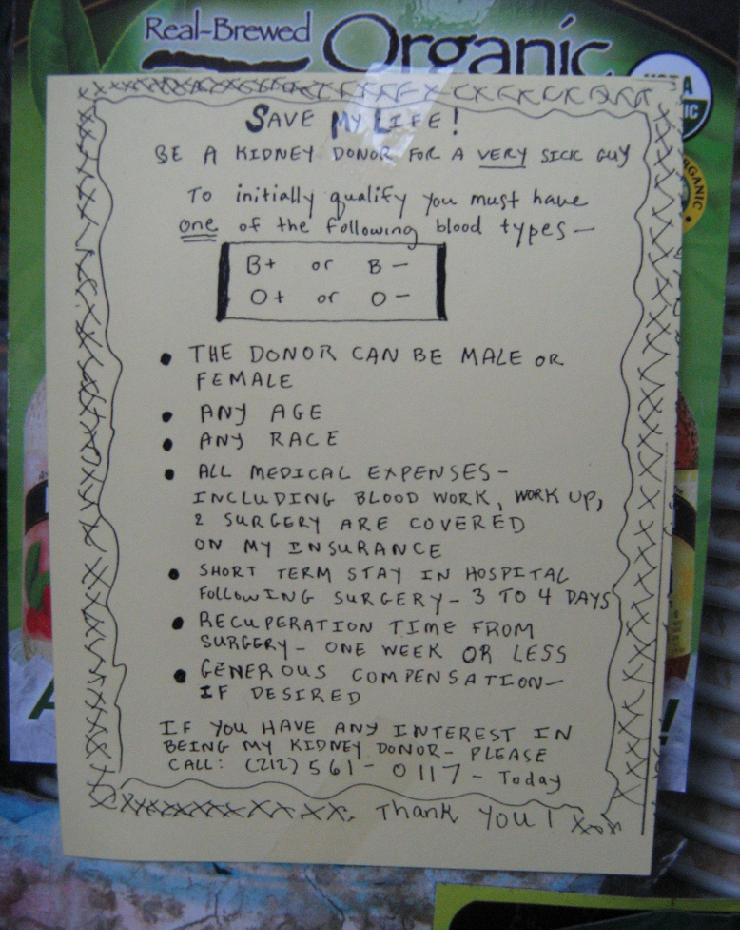 Real-Brewed Organic
SAVE MY LIFE!
BE A KIDNEY DONOR FOR A VERY SICK GUY
To initially qualify you must have
one of the following blood types-
B+ or B-
O+ or O-
• THE DONOR CAN BE MALE OR
FEMALE
• ANY AGE
• ANY RACE
• ALL MEDICAL EXPENSES-
INCLUDING BLOOD WORK, WORK UP,
& SURGERY ARE COVERED
ON MY INSURANCE
• SHORT TERM STAY IN HOSPITAL
FOLLOWING SURGERY- 3 TO 4 DAYS
• RECUPERATION TIME FROM
SURGERY- ONE WEEK OR LESS
• GENEROUS COMPENSATION-
IF DESIRED
IF YOU HAVE ANY INTEREST IN
BEING MY KIDNEY DONOR- PLEASE
CALL: (212) 561-0117- Today
Thank You!
ORGANIC